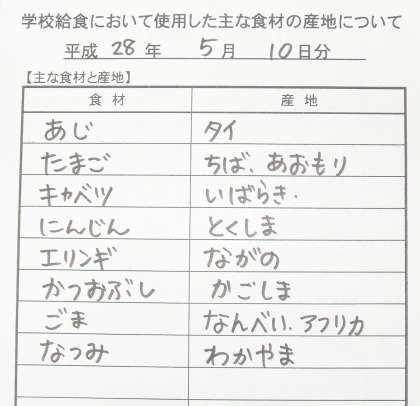 学校給食において使用した主な食材の産地について
平成 28 年 5 月 10 日分
【主な食材と産地】
食材 産地
あじ タイ
たまご ちば、あおもり
キャベツ いばらき.
にんじん とくしま
エリンギ ながの
かつおぶし かごしま
ごま なんべい.アフリカ
なつみ わかやま